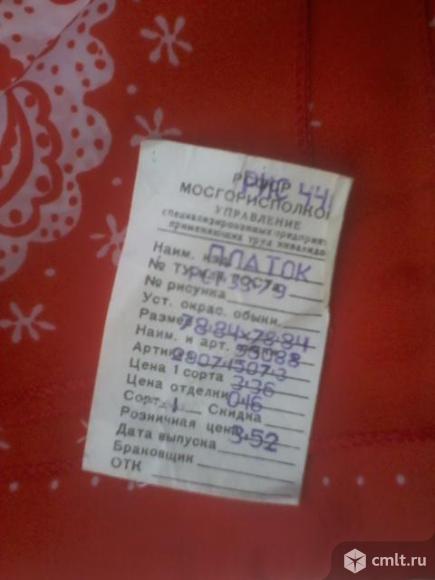 РСФСР РИС 44
МОСГОРИСПОЛКОМ
УПРАВЛЕНИЕ
специализированных предприят
применяющих труд инвалидо
Наим. изд. ПЛАТОК
№ ТУ, РСТ 3379
№ рисунка
Уст. окрас. обыкн.
Размер 78.84х78.84
Наим. и арт. 53088
Артикул
Цена 1 сорта 3-36
Цена отделки 0-16
Сорт 1 Скидка
Розничная цена 3-52
Дата выпуска
Браковщик
ОТК
cmlt.ru